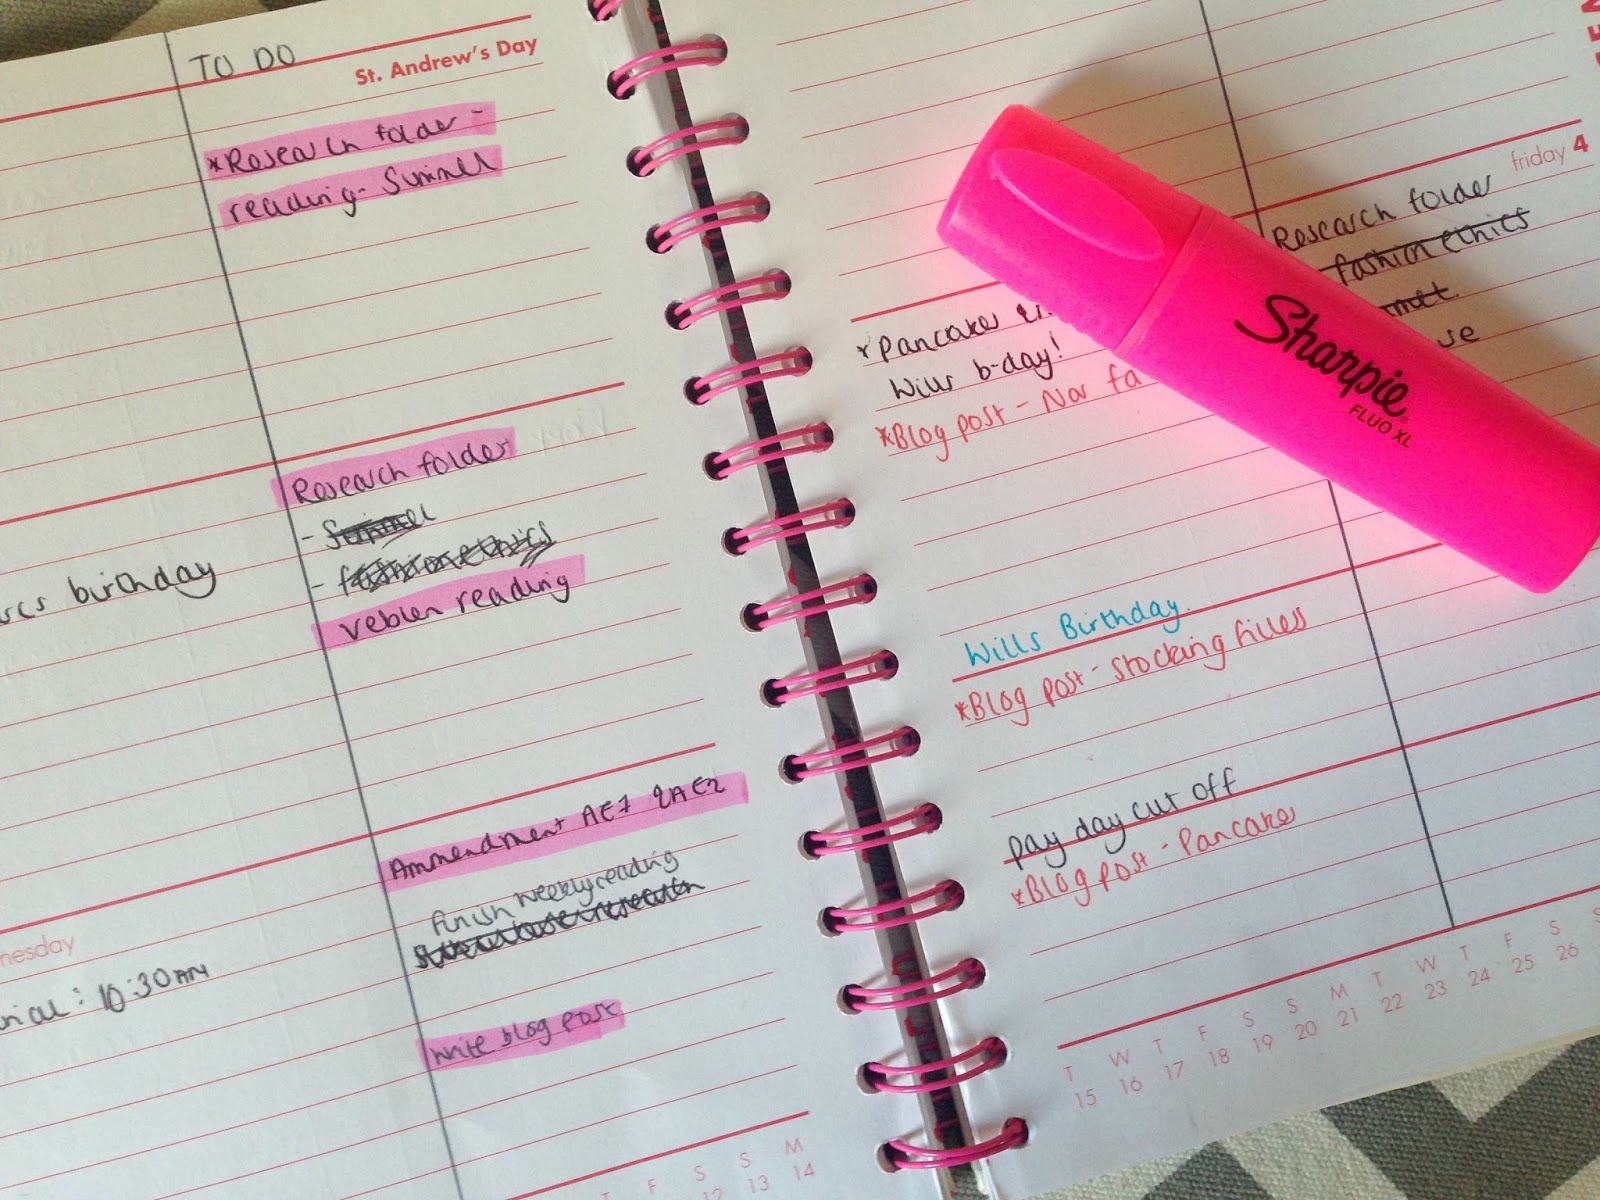 TO DO
St. Andrew's Day
*Research folder -
reading - Simmel
Research folder
- Simmel
- fashion ethics
veblen reading
birthday
Ammendment AE1 & AE2
finish weekly reading
nesday
: 10:30AM
write blog post
F S S M
12 13 14
friday 4
Research folder
fashion ethics
*Pancakes
Wills b-day!
*Blog post - Nov fa
Sharpie
FLUO XL
Wills Birthday.
*Blog post - stocking filles
pay day cut off
*Blog post - Pancakes
T W T F S S M T W T F S
15 16 17 18 19 20 21 22 23 24 25 26